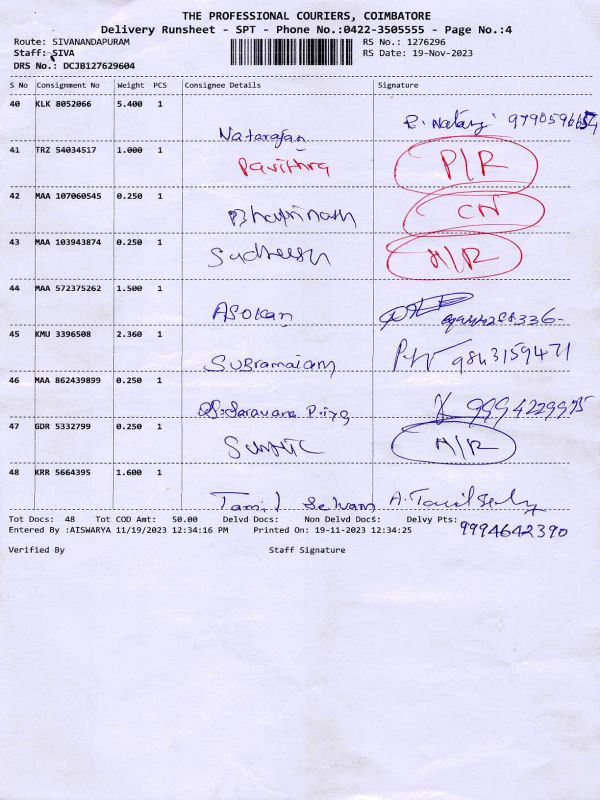 THE PROFESSIONAL COURIERS, COIMBATORE
Delivery Runsheet - SPT - Phone No.:0422-3505555 - Page No.:4
Route: SIVANANDAPURAM RS No.: 1276296
Staff: SIVA RS Date: 19-Nov-2023
DRS No.: DCJB127629604
S No Consignment No Weight PCS Consignee Details Signature
40 KLK 8052066 5.400 1
Natarajan
41 TRZ 54034517 1.000 1
Pavithra P/R
42 MAA 107060545 0.250 1
CN
43 MAA 103943874 0.250 1
Sudheesh
44 MAA 572375262 1.500 1
ASokan
45 KMU 3396508 2.360 1
Subramaiam 9843159471
46 MAA 862439899 0.250 1
Saravana Priya
47 GDR 5332799 0.250 1
48 KRR 5664395 1.600 1
Tamil Selvam
Tot Docs: 48 Tot COD Amt: 50.00 Delvd Docs: Non Delvd Docs: Delvy Pts:
9994642390
Entered By :AISWARYA 11/19/2023 12:34:16 PM Printed On: 19-11-2023 12:34:25
Verified By Staff Signature